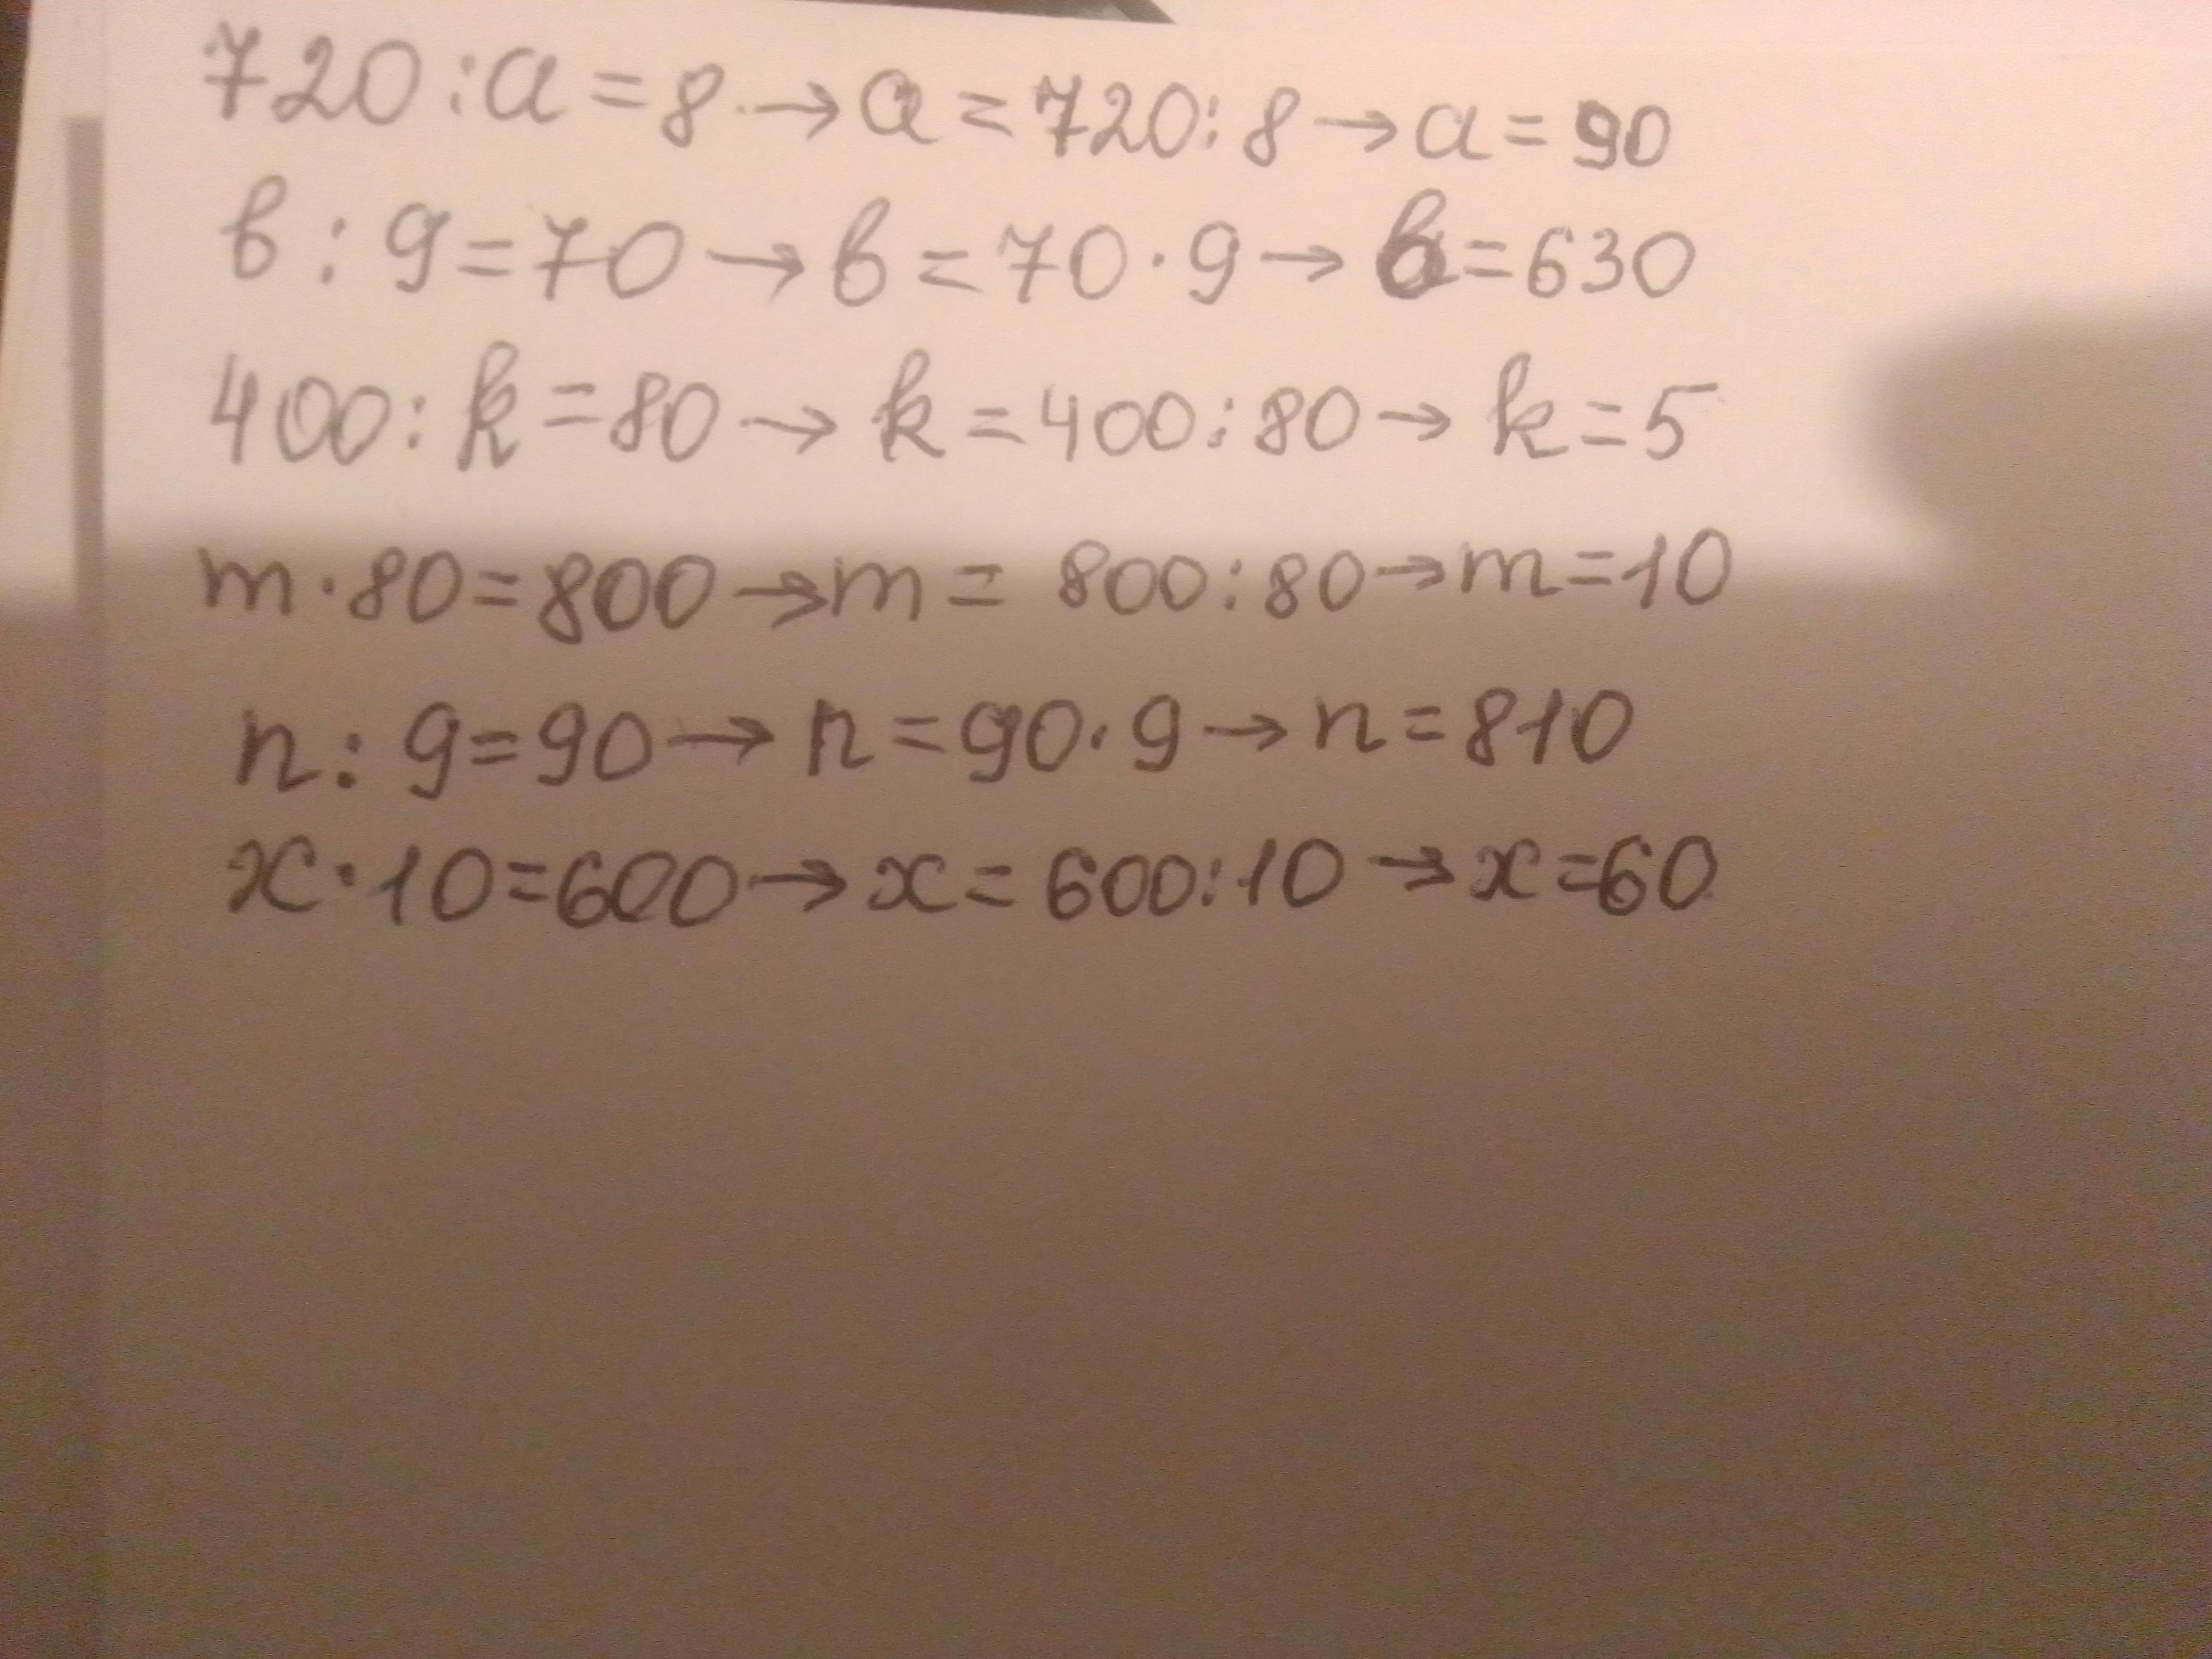 720:a=8→a=720:8→a=90
b:9=70→b=70·9→b=630
400:k=80→k=400:80→k=5
m·80=800→m=800:80→m=10
n:9=90→n=90·9→n=810
x·10=600→x=600:10→x=60